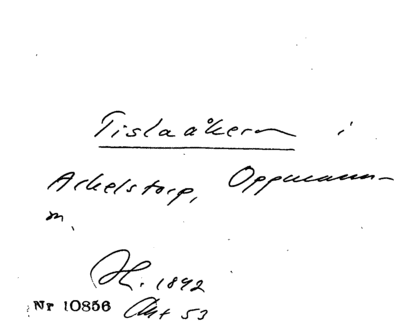 Tislaåkern i
Arkelstorp, Oppmanna-
m.
H. 1842
Nr 10856 Akt 53